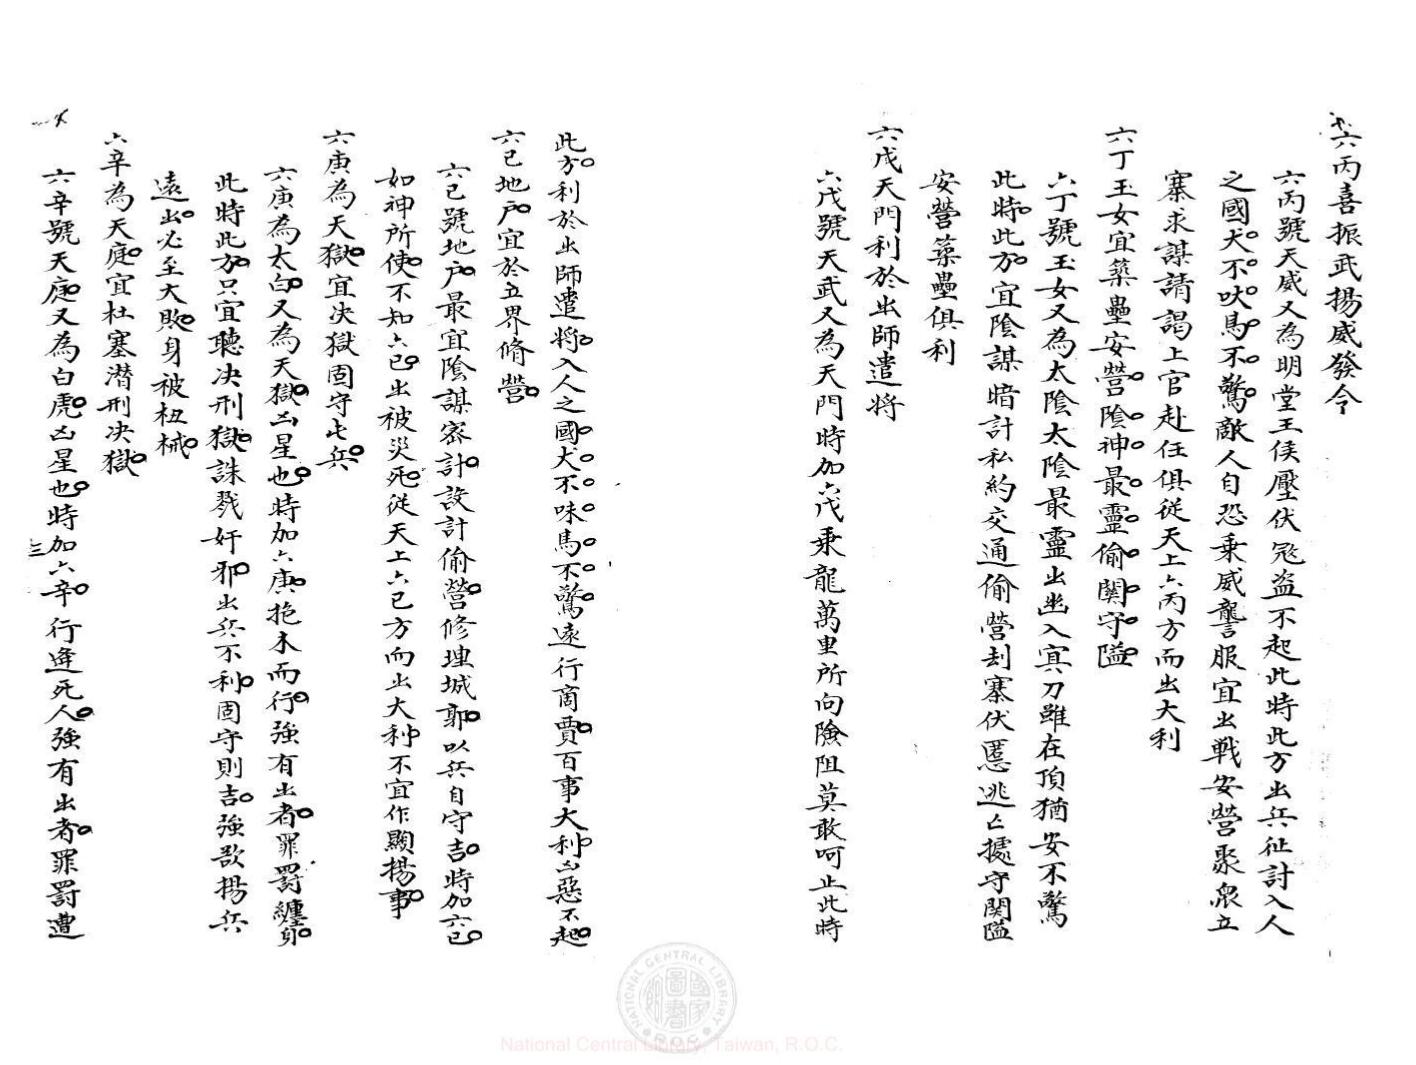 六丙喜振武揚威發令
六丙號天威又為明堂王侯壓伏冦盜不起此時此方出兵征討入人
之國犬不吠馬不驚敵人自恐乗威讋服宜出戦安營聚衆立
寨求謀請謁上官赴任俱從天上六丙方而出大利
六丁玉女宜築壘安營陰神最靈偷關守隘
六丁號玉女又為太陰太陰最靈出幽入冥刀雖在頂猶安不驚
此時此方宜陰謀暗計私約交通偷營刦寨伏慝逃亡據守関隘
安營築壘俱利
六戊天門利於出師遣将
六戊號天武又為天門時加六戊乗龍萬里所向險阻莫敢呵止此時
此方利於出師遣将入人之國犬不味馬不驚遠行商賈百事大利凶惡不起
六己地戸宜於立界脩營
六己號地戸最宜陰謀密計設計偷營修理城郭以兵自守吉時加六己
如神所使不知六己出被災死從天上六己方而出大利不宜作顯揚事
六庚為天獄宜决獄固守屯兵
六庚為太白又為天獄凶星也時加六庚抱木而行強有出者罪罰纏身
此時此方只宜聽决刑獄誅戮奸邪出兵不利固守則吉強敌揚兵
遠出必至大敗身被杻械
六辛為天庭宜杜塞潜刑决獄
六辛號天庭又為白虎凶星也時加六辛行逢死人強有出者罪罰遭
三
National Central Library, Taiwan, R.O.C.
NATIONAL CENTRAL LIBRARY
R.O.C.
國家圖書館